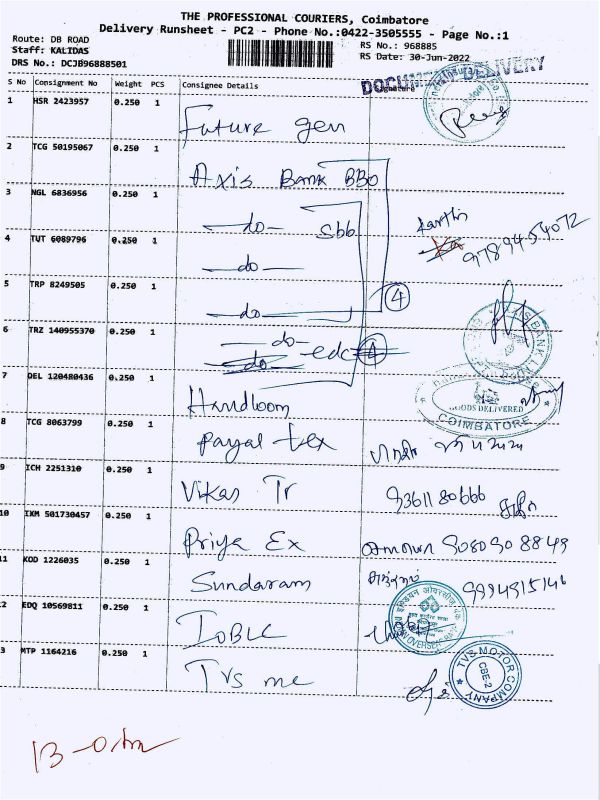 THE PROFESSIONAL COURIERS, Coimbatore
Delivery Runsheet - PC2 - Phone No.:0422-3505555 - Page No.:1
Route: DB ROAD
Staff: KALIDAS
DRS No.: DCJB96888501
RS No.: 968885
RS Date: 30-Jun-2022
DOCUMENT DELIVERY
S No Consignment No Weight PCS Consignee Details Signature
1 HSR 2423957 0.250 1 Future gen
2 TCG 50195067 0.250 1 Axis Bank BBO
3 NGL 6836956 0.250 1 -do- Sbb
Karthi
4 TUT 6089796 0.250 1 -do-
9789454072
5 TRP 8249505 0.250 1 -do- 4
6 TRZ 140955370 0.250 1 -do- edc
AXIS BANK
7 DEL 120480436 0.250 1 Handloom
GOODS DELIVERED
COIMBATORE
8 TCG 8063799 0.250 1 Payal tex
9 ICH 2251310 0.250 1 Vikas Tr 9361180666
10 IKM 501730457 0.250 1 Priya Ex 9080908849
11 KOD 1226035 0.250 1 Sundaram 9994915146
2 EDQ 10569811 0.250 1 IOBLC
INDIAN OVERSEAS BANK
3 MTP 1164216 0.250 1 TVS mc
TVS MOTOR COMPANY
CBE-2